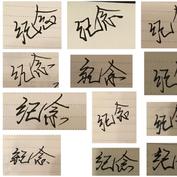 纪念
纪念
纪念
纪念
纪念
纪念
纪念
纪念
纪念
纪念
纪念
纪念